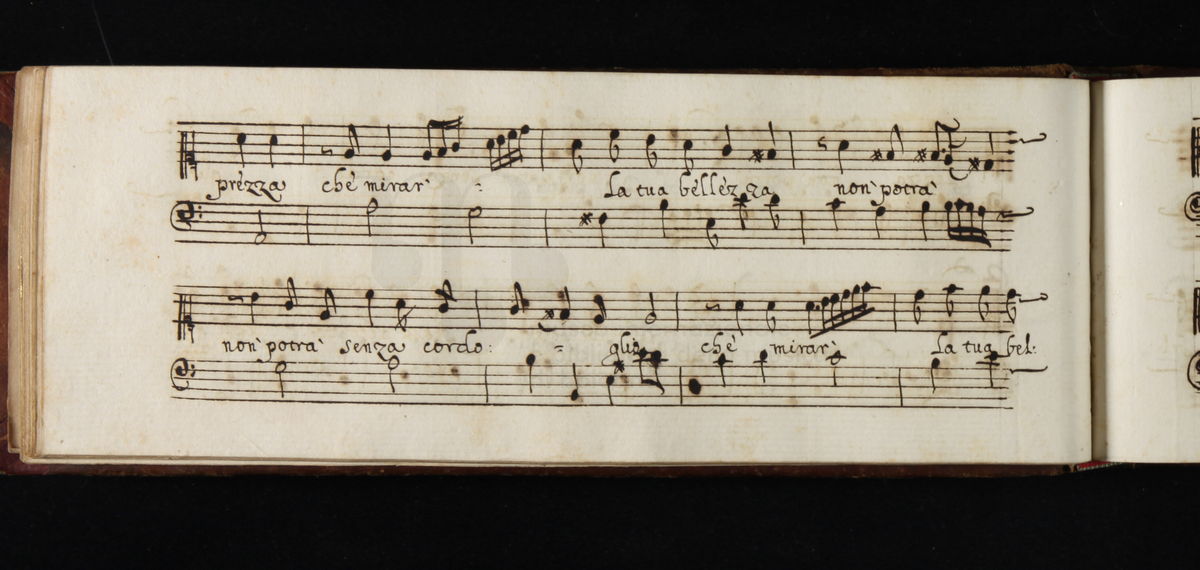 prezza che mirar - la tua bellezza non potrà
non potrà senza cordo: - glio che mirar la tua bel: